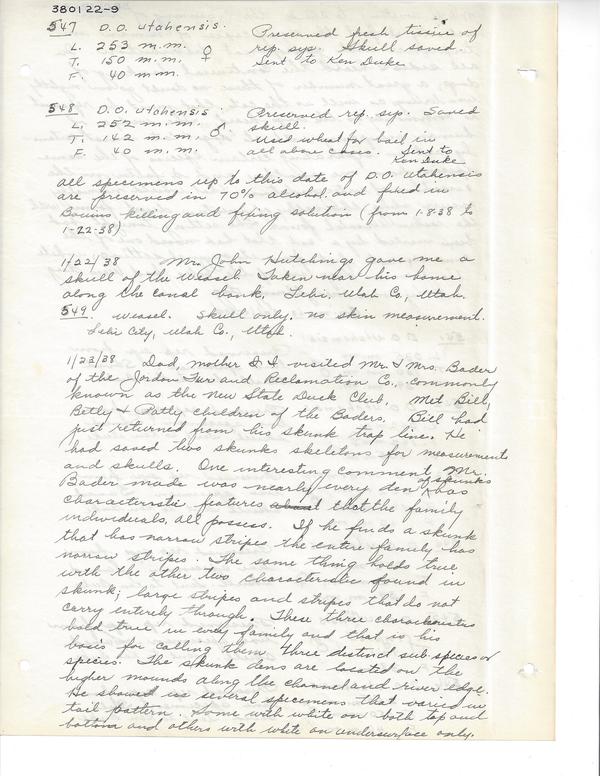 380122-9
547 D.O. utahensis. Preserved fresh tissue of
L. 253 m.m. ♀ rep. sys. Skull saved.
T. 150 m.m. Sent to Ken Duke
F. 40 m.m.
548 D.O. utahensis. Preserved rep. sys. Saved
L. 252 m.m. ♂ skull.
T. 142 m.m. Used wheat for bait in
F. 40 m.m. all above cases. Sent to
Ken Duke
all specimens up to this date of D.O. utahensis
are preserved in 70% alcohol, and fixed in
Bouins killing and fixing solution (from 1-8-38 to
1-22-38)
1/22/38 Mr. John Hutchings gave me a
skull of the Weasel Taken near his home
along the canal bank, Lehi, Utah Co., Utah.
549. Weasel. Skull only. no skin measurement.
Lehi City, Utah Co., Utah.
1/23/38 Dad, mother & I visited Mr. & Mrs. Bader
of the Jordon Fur and Reclamation Co., commonly
known as the New State Duck Club. Met Bill,
Betty & Patty children of the Baders. Bill had
just returned from his skunk trap line. He
had saved two skunks skeletons for measurements
and skulls. One interesting comment Mr.
Bader made was nearly every den of skunks has
characteristic features that the family
individuals, all possess. If he finds a skunk
that has narrow stripes the entire family has
narrow stripes. The same thing holds true
with the other two characteristic found in
skunk; large stripes and stripes that do not
carry enterely through. These three characteristics
hold true in every family and that is his
basis for calling them three distinct sub-species or
species. The skunk dens are located on the
higher mounds along the channel and river edge.
He showed us several specimens that varied in
tail pattern. Some with white on both top and
bottom and others with white on undersurface only.